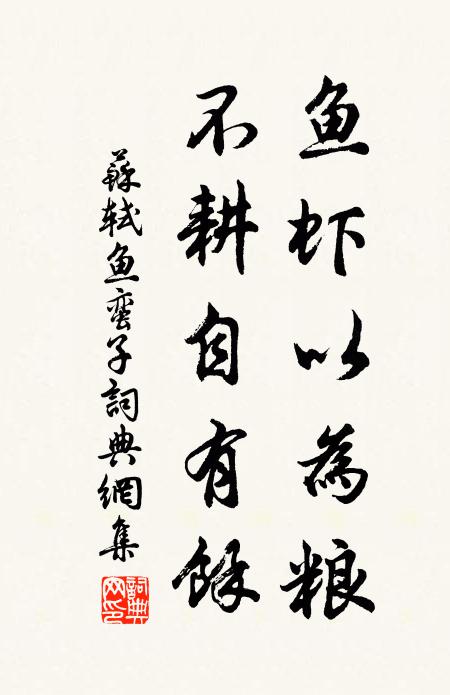 鱼虾以為粮
不耕自有餘
蘇轼鱼蛮子詞典網集
詞典网印